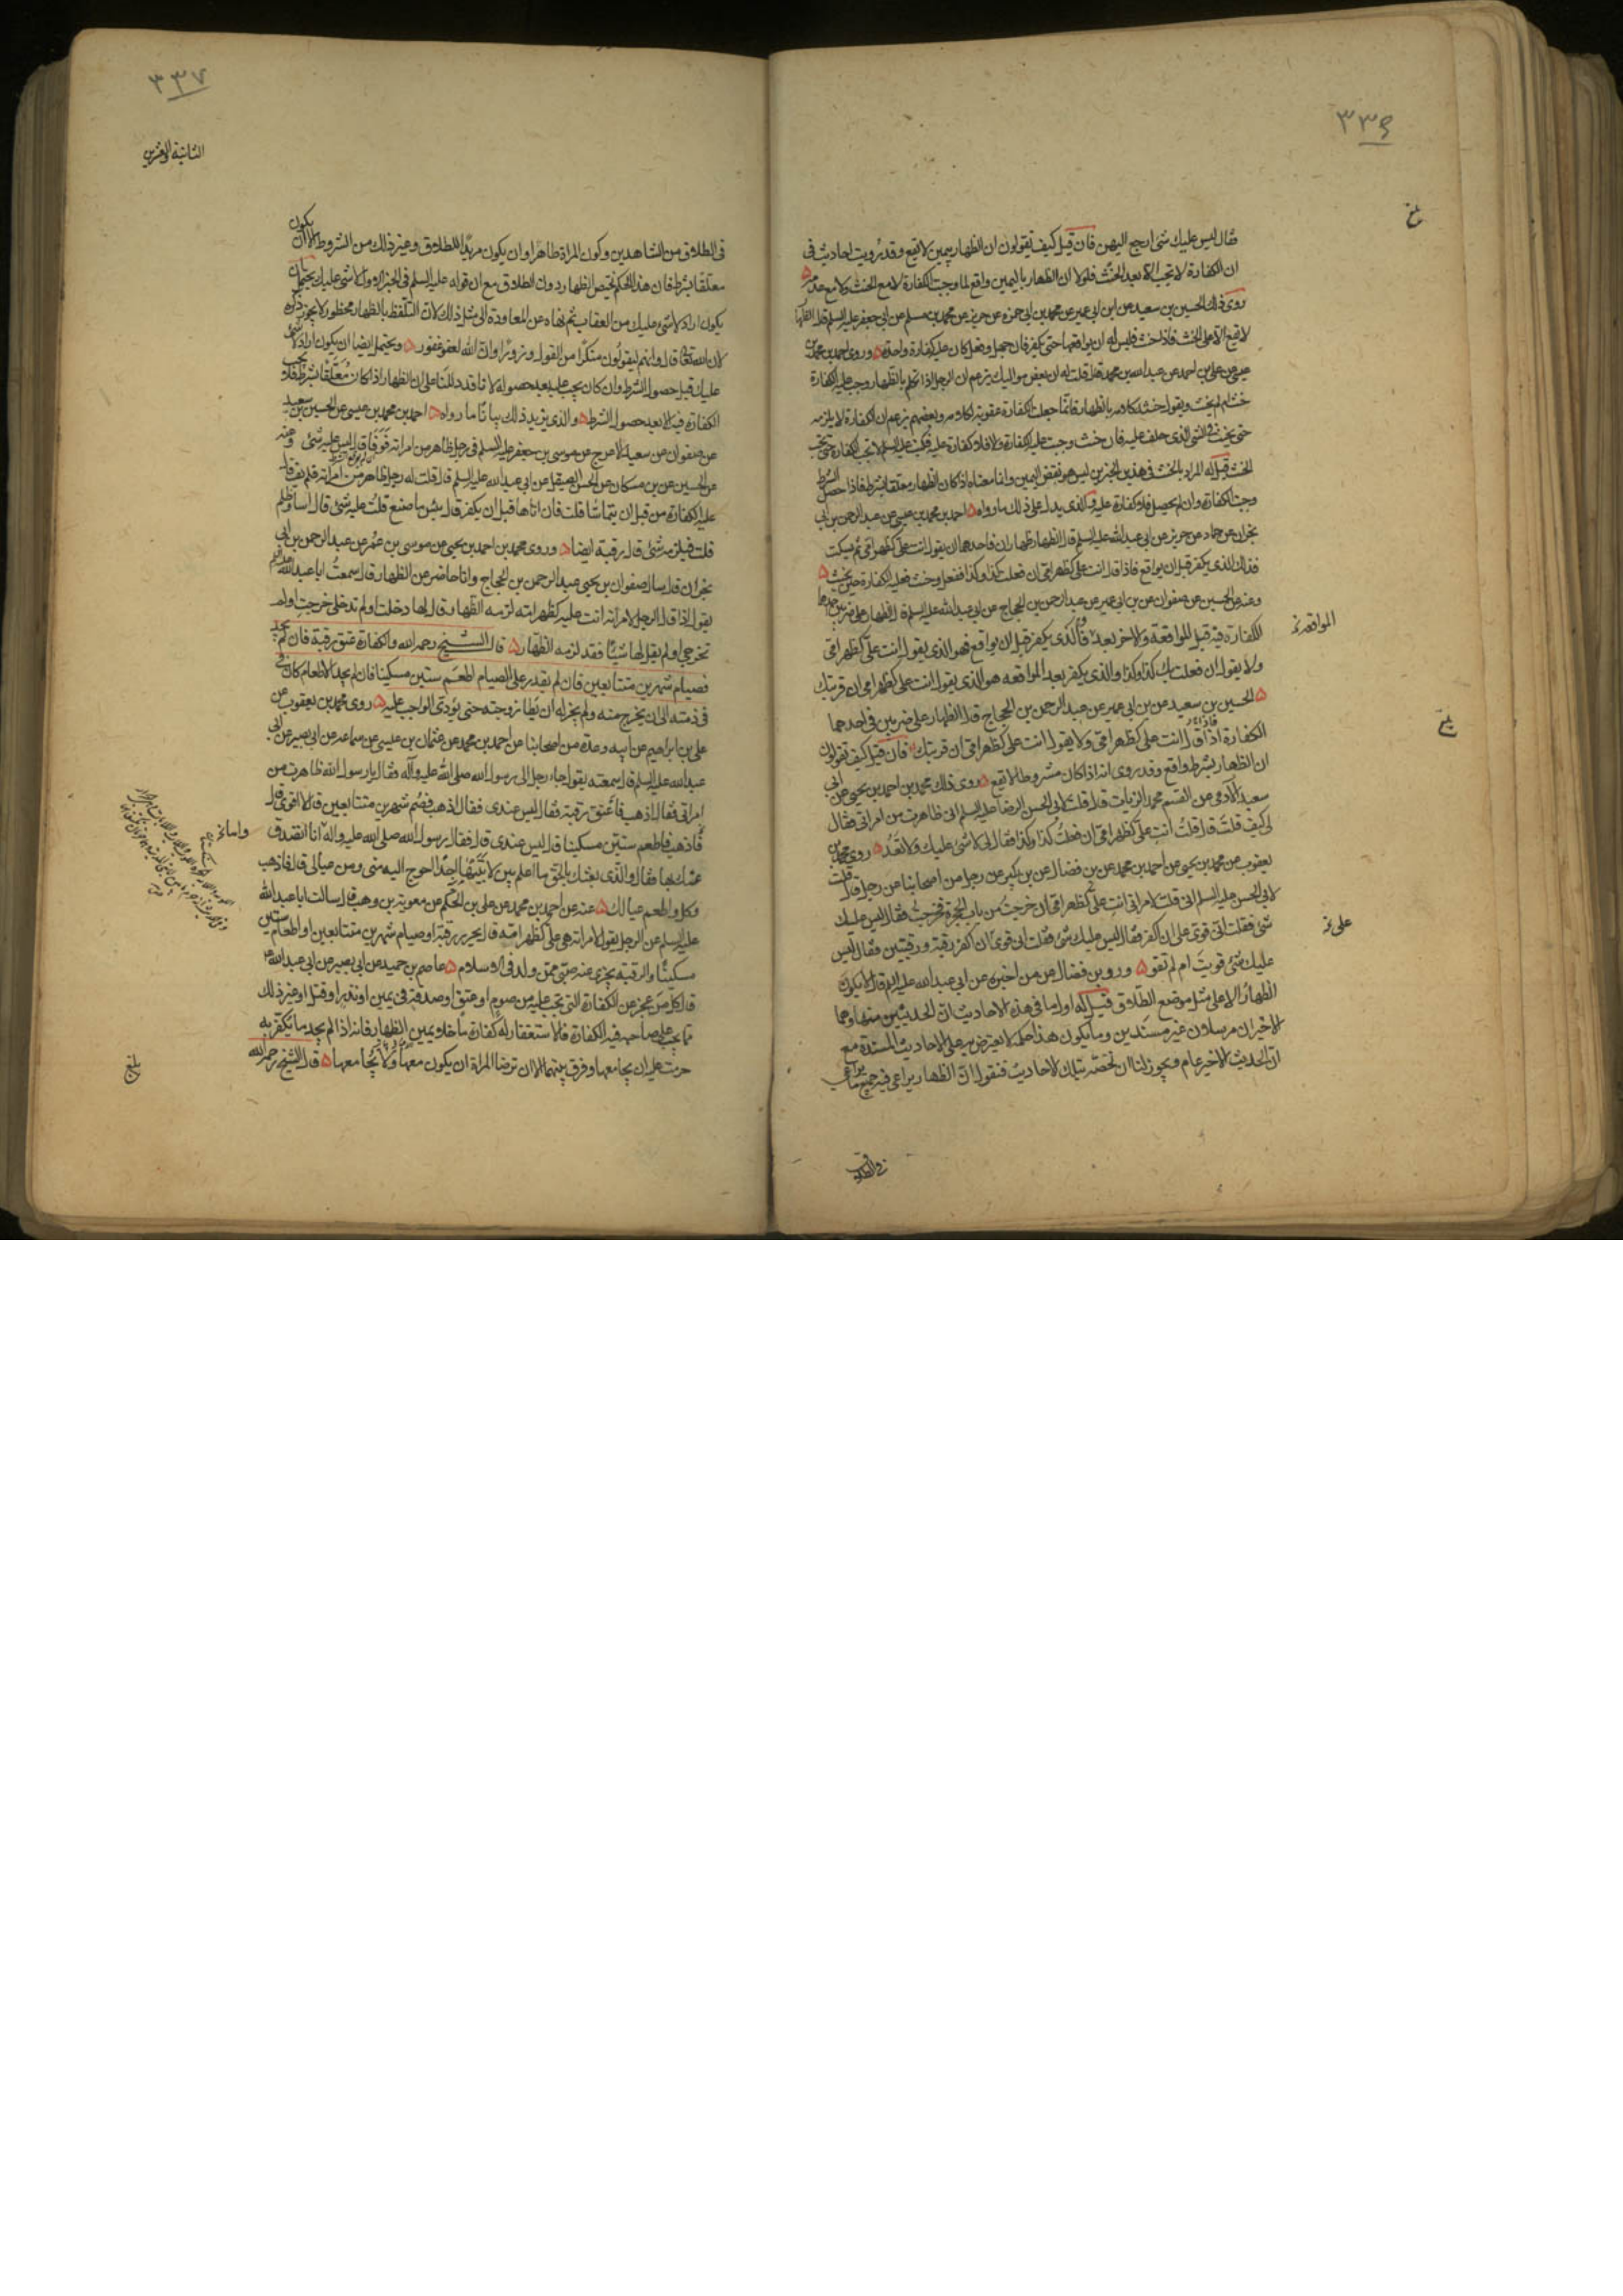 ٣٣٦
فقال ليس عليك شئ ارجع اليهن فان قيل كيف تقولون ان الظهار بيمين لا يقع وقد رويت احاديث في
ان الكفارة لا تجب الا بعد الحنث فلولا ان الظهار باليمين واقع لما وجبت الكفارة لا مع الحنث ولا مع عدمه
روى ذلك الحسين بن سعيد عن ابن ابي عمير عن محمد بن ابي حمزه عن حريز عن محمد بن مسلم عن ابي جعفر عليه السلم قال الظهار
لا يقع الا على الحنث فاذا حنث فليس له ان يواقعها حتى يكفر فان جهل وفعل كان عليه كفارة واحدة وروى احمد بن محمد بن
عيسى عن علي بن احمد عن عبد الله بن محمد قال قلت له ان بعض مواليك يزعم ان الرجل اذا تكلم بالظهار وجب عليه الكفارة
حنث ام لم يحنث ويقول حنثه كلامه بالظهار فانما جعلت الكفارة عقوبة لكلامه وبعضهم يزعم ان الكفارة لا يلزمه
حتى يحنث في الشئ الذي حلف عليه فان حنث وجبت عليه الكفارة والا فلا كفارة عليه فكتب عليه السلم لا تجب الكفارة حتى يجب
الحنث قيل له المراد بالحنث في هذين الخبرين ليس هو نقض اليمين وانما معناه اذا كان الظهار معلقا بشرط فاذا حصل الشرط
وجبت الكفارة وان لم يحصل فلا كفارة عليه والذي يدل على ذلك ما رواه احمد بن محمد بن عيسى عن عبد الرحمن بن ابي
نجران عن حماد عن حريز عن ابي عبد الله عليه السلم قال الظهار ظهاران فاحدهما ان يقول انت علي كظهر امي ثم يسكت
فذلك الذي يكفر قبل ان يواقع فاذا قال انت علي كظهر امي ان فعلت كذا وكذا ففعل وحنث فعليه الكفارة حين يحنث
وعنه عن الحسين عن صفوان عن بن ابي عمير عن عبد الرحمن بن الحجاج عن ابي عبد الله عليه السلم قال الظهار على ضربين احدهما
الكفارة فيه قبل المواقعة والاخر بعد فالذي يكفر قبل ان يواقع فهو الذي يقول انت علي كظهر امي
المواقعة
ولا يقول ان فعلت بك كذا وكذا والذي يكفر بعد المواقعه هو الذي يقول انت علي كظهر امي ان قربتك
الحسين بن سعيد عن بن ابي عمير عن عبد الرحمن بن الحجاج قال الظهار على ضربين في احدهما
الكفارة اذا قال انت علي كظهر امي ولا يقول انت علي كظهر امي ان قربتك فان قيل كيف تقولون
ان الظهار بشرط واقع وقد روى انه اذا كان مشروطا لا يقع روى ذلك محمد بن احمد بن يحيى عن ابي
سعيد الآدمي عن القسم محمد الزيات قال قلت لابي الحسن الرضا عليه السلم اني ظاهرت من امراتي فقال
لي كيف قلت قال قلت انت علي كظهر امي ان فعلت كذا وكذا فقال لي لا شئ عليك ولا تعد روى محمد بن
يعقوب عن محمد بن يحيى عن احمد بن محمد عن بن فضال عن بن بكير عن رجل من اصحابنا عن رجل قال قلت
لابي الحسن عليه السلم اني قلت لامراتي انت علي كظهر امي ان خرجت من باب الحجرة فخرجت فقال ليس عليك
شئ فقلت اني قوي على ان اكفر فقال ليس عليك شئ فقلت اني قوي ان اكفر رقبة ورقبتين فقال ليس
على
عليك شئ قويت ام لم تقو وروى بن فضال عن من اخبره عن ابي عبد الله عليه السلم قال لا يكون
الظهار الا على مثل موضع الطلاق قيل له اول ما في هذه الاحاديث ان الحديثين منها وهما
الاخيران مرسلان غير مسندين وما يكون هذا حكمه لا يعترض به على الاحاديث المسندة مع
ان الحديث الاخير عام ويجوز لنا ان نخصه بتلك الاحاديث فنقول ان الظهار يراعى فيه جميع ما يراعى
في الطلاق
٣٣٧
في الطلاق من الشاهدين وكون المراة طاهرا وان يكون مريدا للطلاق وغير ذلك من الشروط الا ان يكون
معلقا بشرط فان هذا الحكم يختص الظهار دون الطلاق مع ان قوله عليه السلم في الخبر الاول لا شئ عليك يحتمل ان
يكون اراد لا شئ عليك من العقاب ثم نهاه عن المعاودة الى مثل ذلك لان التلفظ بالظهار محظور لا يجوز ذكره
لان الله تعالى قال وانهم ليقولون منكرا من القول وزورا وان الله لعفو غفور ويحتمل ايضا ان يكون اراد لا شئ
عليك قبل حصول الشرط وان كان يجب عليه بعد حصوله لانا قد دللنا على ان الظهار اذا كان معلقا بشرط فلا يجب
الكفارة فيه الا بعد حصول الشرط والذي يزيد ذلك بيانا ما رواه احمد بن محمد بن عيسى عن الحسين بن سعيد
عن صفوان عن سعيد الاعرج عن موسى بن جعفر عليه السلم في رجل ظاهر من امراته فوفى قال ليس عليه شئ وعنه
عن الحسين عن بن مسكان عن الحسن الصيقل عن ابي عبد الله عليه السلم قال قلت له رجل ظاهر من امراته فلم يف قال
عليه الكفارة من قبل ان يتماسا قلت فان اتاها قبل ان يكفر قال بئس ما صنع قلت عليه شئ قال اساء وظلم
قلت فيلزمه شئ قال رقبة ايضا وروى محمد بن احمد بن يحيى عن موسى بن عمر عن عبد الرحمن بن ابي
نجران قال سال صفوان بن يحيى عبد الرحمن بن الحجاج وانا حاضر عن الظهار قال سمعت ابا عبد الله عليه السلم
يقول اذا قال الرجل لامراته انت عليه كظهر امه لزمه الظهار قال لها دخلت او لم تدخلي خرجت او لم
تخرجي او لم يقل لها شيئا فقد لزمه الظهار قال الشيخ رحمه الله والكفارة عتق رقبة فان لم يجد
فصيام شهرين متتابعين فان لم يقدر على الصيام اطعم ستين مسكينا فان لم يجد الاطعام كان في
في ذمته الى ان يخرج منه ولم يجز له ان يطا زوجته حتى يؤدي الواجب عليه روى محمد بن يعقوب عن
علي بن ابراهيم عن ابيه وعدة من اصحابنا عن احمد بن محمد عن عثمان بن عيسى عن سماعه عن ابي بصير عن ابي
عبد الله عليه السلم قال سمعته يقول جاء رجل الى رسول الله صلى الله عليه وآله فقال يا رسول الله ظاهرت من
امراتي فقال اذهب فاعتق رقبة فقال ليس عندي فقال اذهب فصم شهرين متتابعين قال لا اقوى قال
فاذهب فاطعم ستين مسكينا قال ليس عندي قال فقال رسول الله صلى الله عليه واله انا اتصدق
عنك بها فقال والذي بعثك بالحق ما اعلم بين لابتيها احدا احوج اليه مني ومن عيالي قال فاذهب
وكل واطعم عيالك عنه عن احمد بن محمد عن علي بن الحكم عن معوية بن وهب قال سالت ابا عبد الله
عليه السلم عن الرجل يقول لامراته هي علي كظهر امه قال يحرر رقبة او صيام شهرين متتابعين او اطعام ستين
مسكينا والرقبة يجزي عنه صبي ممن ولد في الاسلام عاصم بن حميد عن ابي بصير عن ابي عبد الله
قال كل من عجز عن الكفارة التي تجب عليه من صوم او عتق او صدقة في يمين او نذر او قتل او غير ذلك
مما يجب على صاحبه فيه الكفارة فالاستغفار له كفارة ما خلا يمين الظهار فانه اذا لم يجد ما يكفر به
حرمت عليه ان يجامعها وفرق بينهما الا ان ترضا المراة ان يكون معها ولا يجامعها قال الشيخ رحمه الله